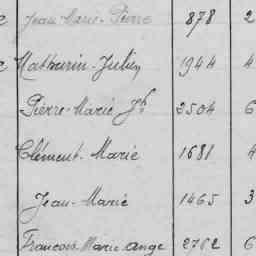 e Jean Marie-Pierre 878 2
e Mathurin-Julien 1944 4
Pierre-Marie Jh 2504 6
Clément-Marie 1681 4
Jean-Marie 1465 3
Francois Marie ange 2762 6